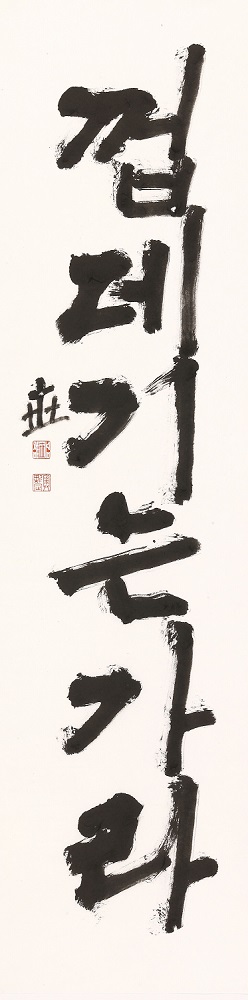 껍데기는가라